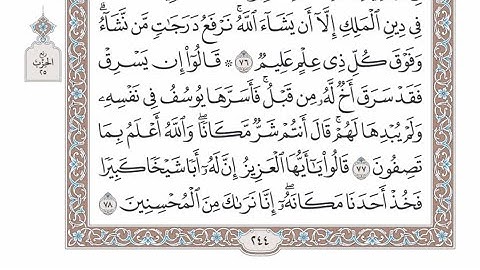 فِي دِينِ ٱلۡمَلِكِ إِلَّآ أَن يَشَآءَ ٱللَّهُۚ نَرۡفَعُ دَرَجَٰتٖ مَّن نَّشَآءُۗ
وَفَوۡقَ كُلِّ ذِي عِلۡمٍ عَلِيمٞ ٧٦ ۞ قَالُوٓاْ إِن يَسۡرِقۡ
فَقَدۡ سَرَقَ أَخٞ لَّهُۥ مِن قَبۡلُۚ فَأَسَرَّهَا يُوسُفُ فِي نَفۡسِهِۦ
وَلَمۡ يُبۡدِهَا لَهُمۡۚ قَالَ أَنتُمۡ شَرّٞ مَّكَانٗاۖ وَٱللَّهُ أَعۡلَمُ بِمَا
تَصِفُونَ ٧٧ قَالُواْ يَٰٓأَيُّهَا ٱلۡعَزِيزُ إِنَّ لَهُۥٓ أَبٗا شَيۡخٗا كَبِيرٗا
فَخُذۡ أَحَدَنَا مَكَانَهُۥٓۖ إِنَّا نَرَىٰكَ مِنَ ٱلۡمُحۡسِنِينَ ٧٨
ربع
الحزب
٢٥
٢٤٤